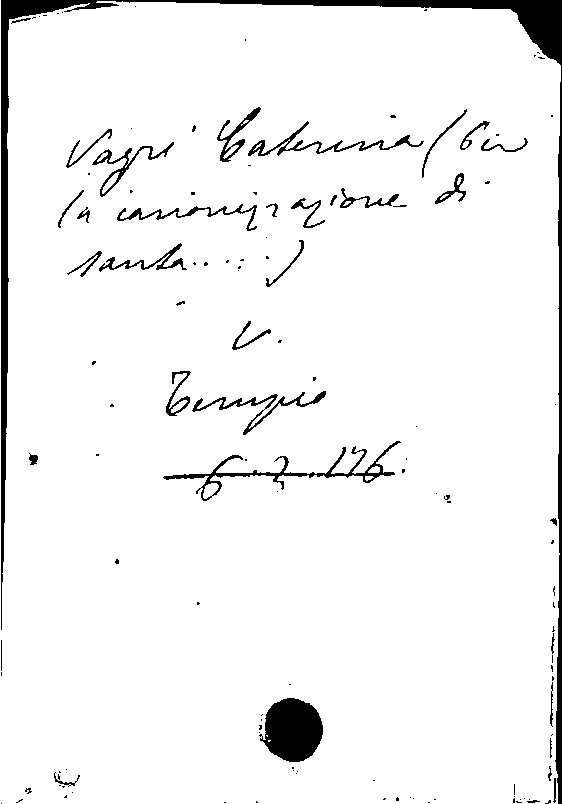 Vagri Caterina (Per
la canonizzazione di
santa.....)
V.
Tempio
6.2.176.